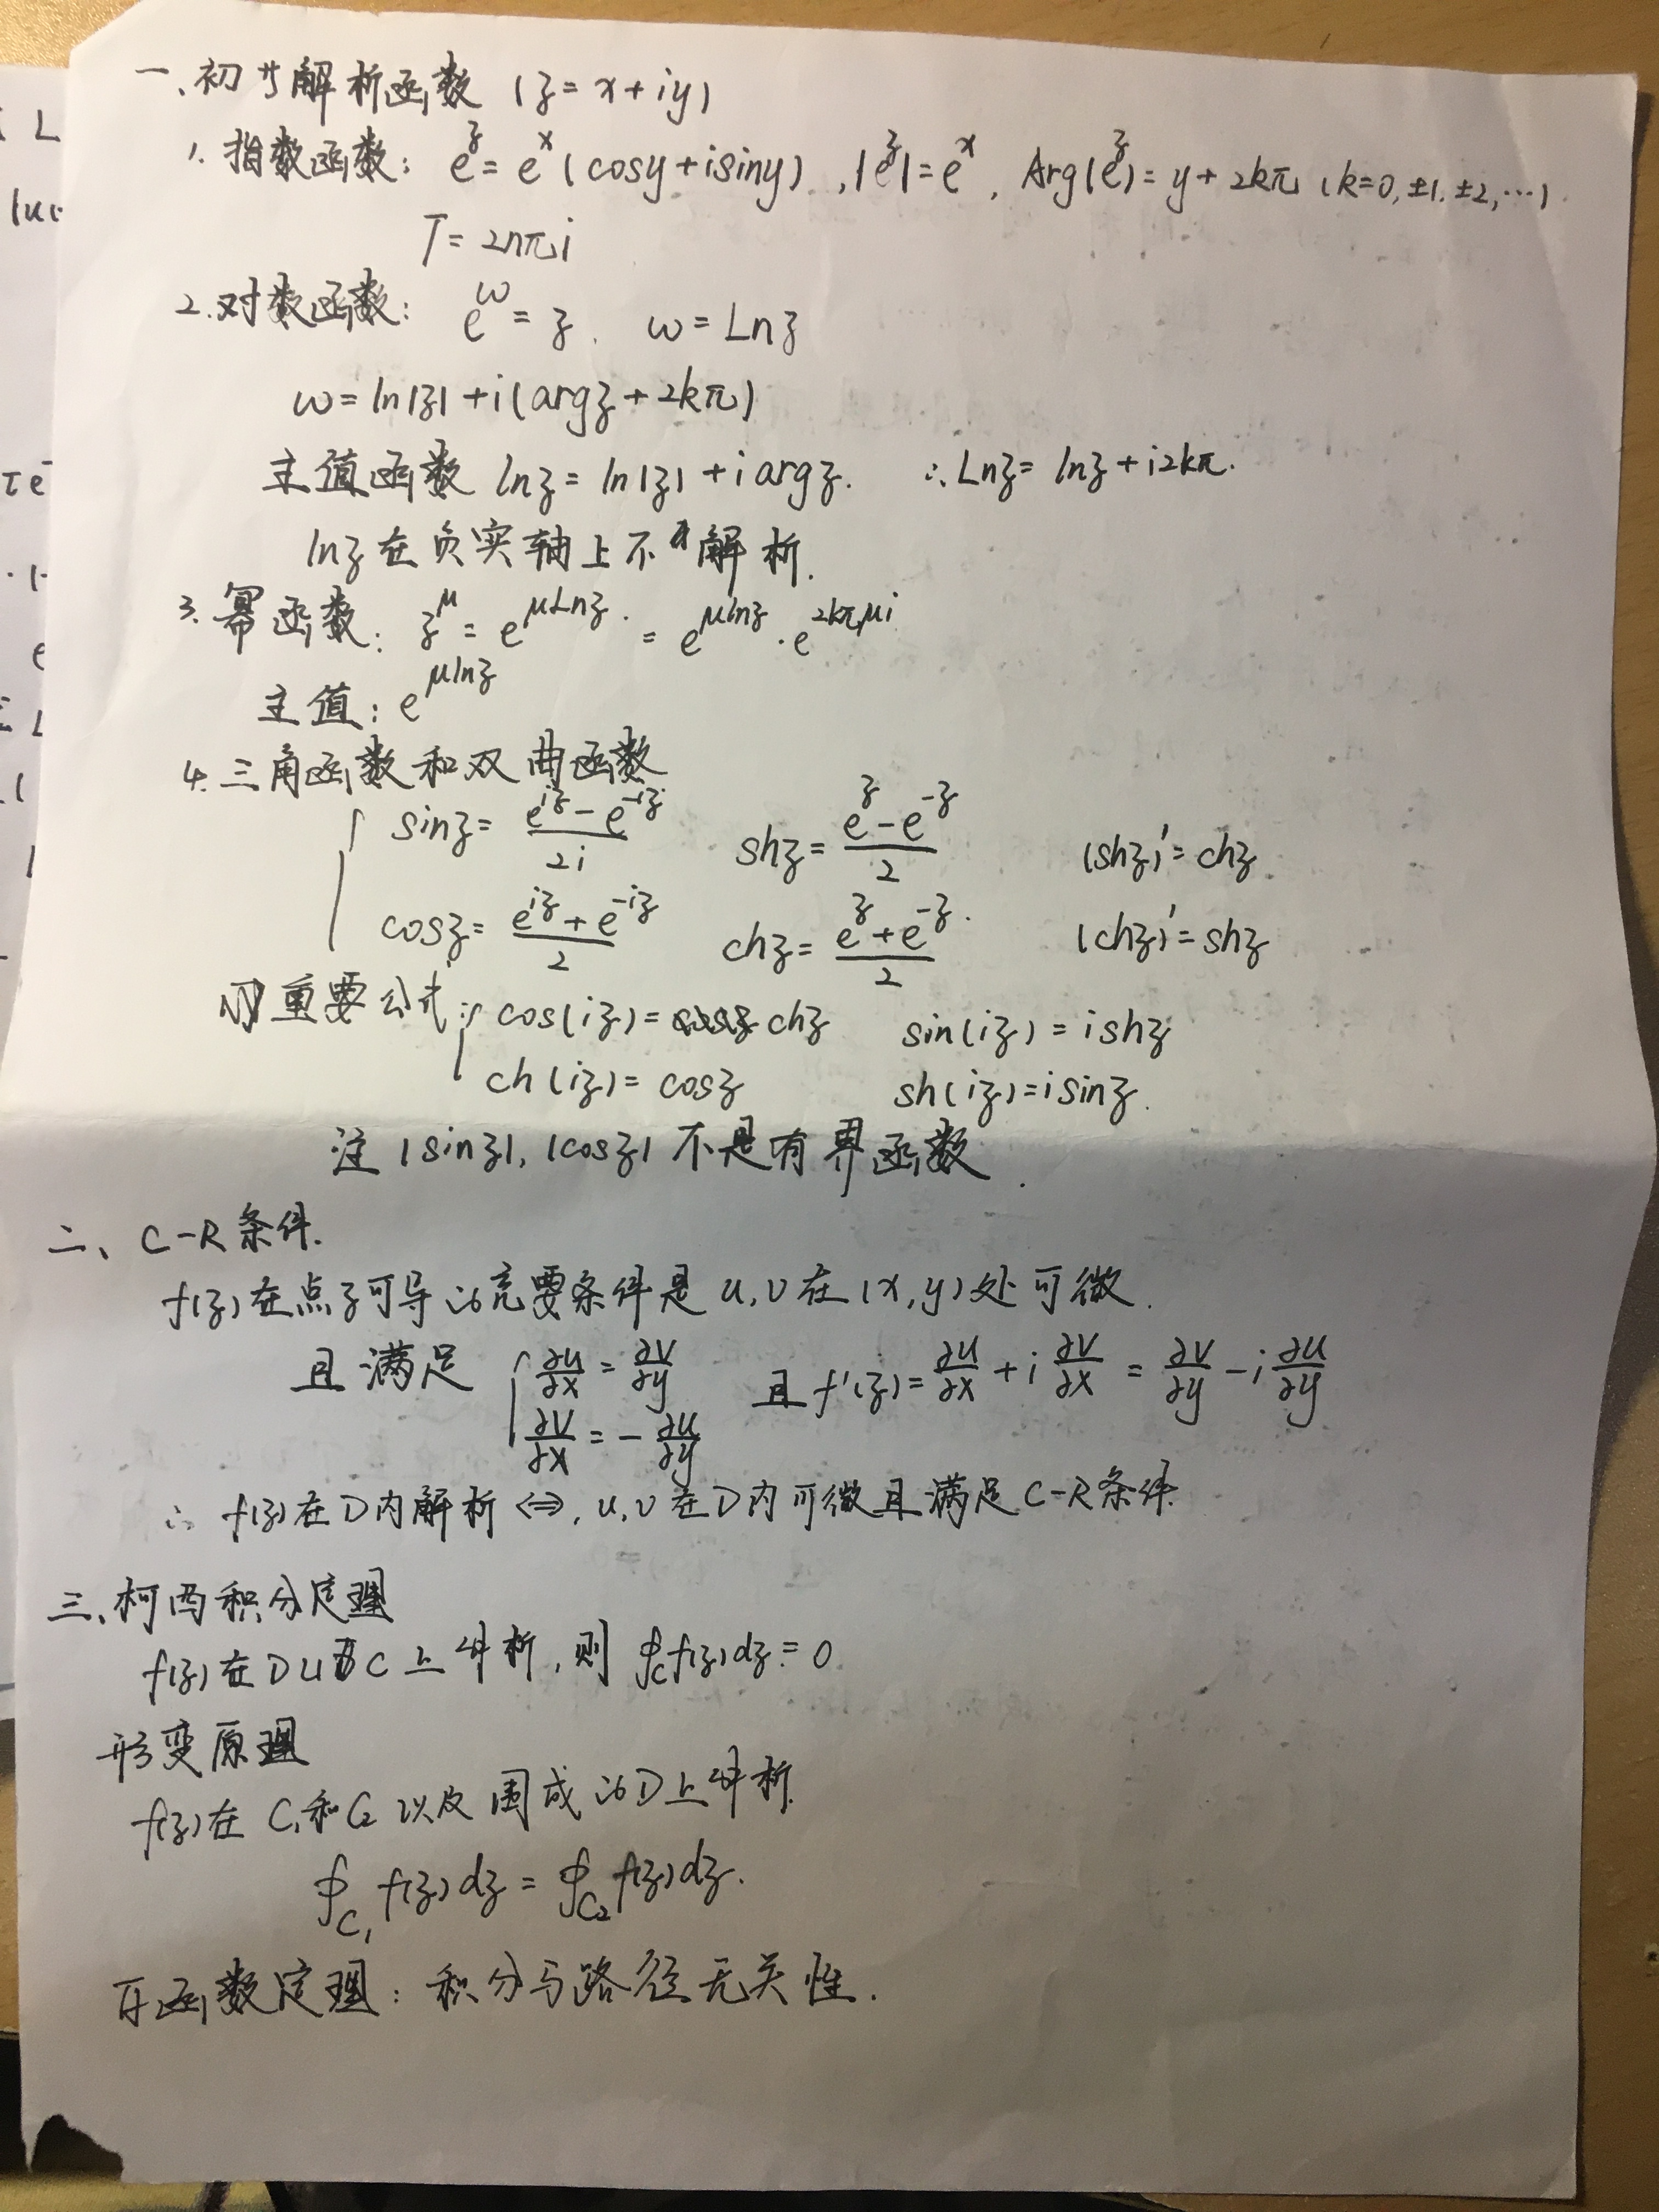 一、初等解析函数 (z = x + iy)
1. 指数函数: e^z = e^x (cosy + isiny), |e^z| = e^x, Arg(e^z) = y + 2kπ (k=0, ±1, ±2, ⋯)
T = 2nπi
2. 对数函数: e^ω = z. ω = Lnz
ω = ln|z| + i(argz + 2kπ)
主值函数 lnz = ln|z| + i argz. ∴ Lnz = lnz + i2kπ.
lnz 在负实轴上不解析.
3. 幂函数: z^μ = e^{μLnz}. = e^{μlnz} · e^{2kπμi}
主值: e^{μlnz}
4. 三角函数和双曲函数
sinz = (e^{iz} - e^{-iz})/2i shz = (e^z - e^{-z})/2 (shz)' = chz.
cosz = (e^{iz} + e^{-iz})/2 chz = (e^z + e^{-z})/2. (chz)' = shz
重要公式: cos(iz) = chz sin(iz) = ishz
ch(iz) = cosz sh(iz) = isinz.
注 |sinz|, |cosz| 不是有界函数.
二、C-R条件.
f(z)在点z可导的充要条件是 u,v在(x,y)处可微.
且满足 ∂u/∂x = ∂v/∂y 且 f'(z) = ∂u/∂x + i ∂v/∂x = ∂v/∂y - i ∂u/∂y
∂v/∂x = - ∂u/∂y
∴ f(z)在D内解析 ⇔, u,v在D内可微且满足C-R条件.
三、柯西积分定理
f(z)在D∪C上解析, 则 ∮_C f(z)dz = 0
形变原理
f(z)在 C₁和C₂以及围成的D上解析.
∮_{C₁} f(z)dz = ∮_{C₂} f(z)dz.
原函数定理: 积分与路径无关性.